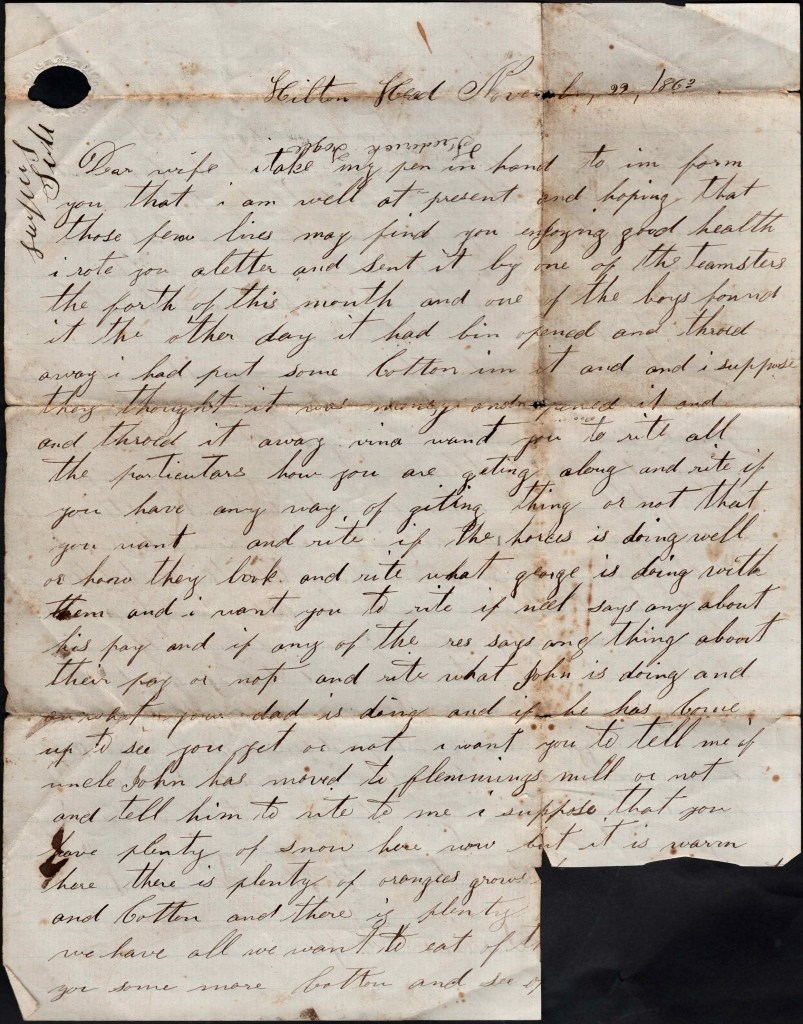 Hilton Head November, 22, 1863
Fredrick
Dear wife i take my pen in hand to im form
you that i am well at present and hoping that
those few lines may find you enjoying good health
i rote you a letter and sent it by one of the teamsters
the forth of this month and one of the boys found
it the other day it had bin opened and throd
away i had put some Cotton im it and and i suppose
they thought it was money and opened it and
and throd it away vina vant you to rite all
the particulars how you are geting along and rite if
you have any way of giting thing or not that
you vant and rite if the horces is doing well
or haow they look and rite what george is doing with
them and i vant you to rite if neel says any about
his pay and if any of the res says any thing aboout
their pay or not and rite what John is doing and
your dad is doing and if he has Come
up to see you yet or not i want you to tell me if
uncle John has moved to flemmings mill or not
and tell him to rite to me i suppose that you
have plenty of snow here now but it is warm
here there is plenty of orangies grows
and Cotton and there is plenty
we have all we want to eat of
you some more Cotton and see